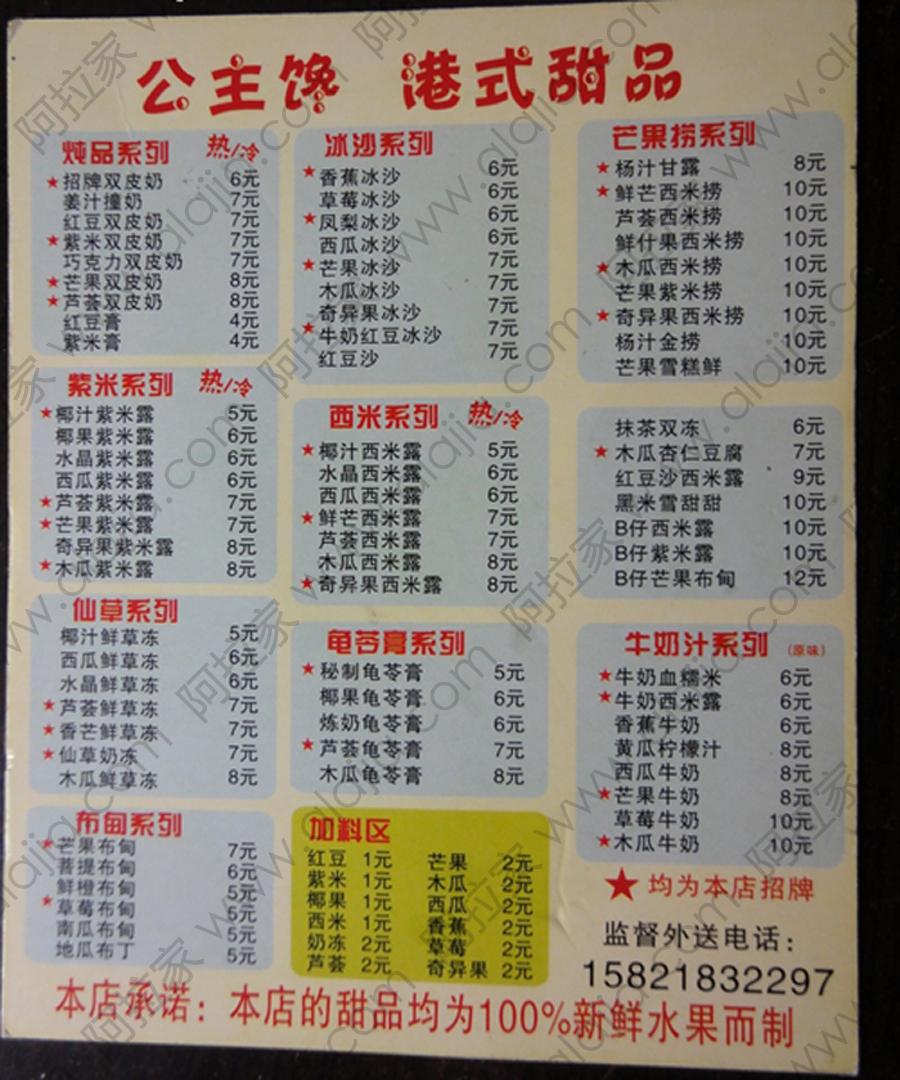 公主馋 港式甜品
炖品系列 热/冷
★招牌双皮奶 6元
姜汁撞奶 7元
红豆双皮奶 7元
★紫米双皮奶 7元
巧克力双皮奶 7元
★芒果双皮奶 8元
★芦荟双皮奶 8元
红豆膏 4元
紫米膏 4元
紫米系列 热/冷
★椰汁紫米露 5元
椰果紫米露 6元
水晶紫米露 6元
西瓜紫米露 6元
★芦荟紫米露 7元
★芒果紫米露 7元
奇异果紫米露 8元
★木瓜紫米露 8元
仙草系列
椰汁鲜草冻 5元
西瓜鲜草冻 6元
水晶鲜草冻 6元
★芦荟鲜草冻 7元
★香芒鲜草冻 7元
★仙草奶冻 7元
木瓜鲜草冻 8元
布甸系列
★芒果布甸 7元
菩提布甸 6元
鲜橙布甸 5元
★草莓布甸 5元
南瓜布甸 5元
地瓜布丁 5元
冰沙系列
★香蕉冰沙 6元
草莓冰沙 6元
★凤梨冰沙 6元
西瓜冰沙 6元
★芒果冰沙 7元
木瓜冰沙 7元
奇异果冰沙 7元
★牛奶红豆冰沙 7元
红豆沙 7元
西米系列 热/冷
★椰汁西米露 5元
水晶西米露 6元
西瓜西米露 6元
★鲜芒西米露 7元
芦荟西米露 7元
木瓜西米露 8元
★奇异果西米露 8元
龟苓膏系列
★秘制龟苓膏 5元
椰果龟苓膏 6元
炼奶龟苓膏 6元
★芦荟龟苓膏 7元
木瓜龟苓膏 8元
加料区
红豆 1元 芒果 2元
紫米 1元 木瓜 2元
椰果 1元 西瓜 2元
西米 1元 香蕉 2元
奶冻 2元 草莓 2元
芦荟 2元 奇异果 2元
芒果捞系列
★杨汁甘露 8元
★鲜芒西米捞 10元
芦荟西米捞 10元
鲜什果西米捞 10元
★木瓜西米捞 10元
芒果紫米捞 10元
★奇异果西米捞 10元
杨汁金捞 10元
芒果雪糕鲜 10元
抹茶双冻 6元
★木瓜杏仁豆腐 7元
红豆沙西米露 9元
黑米雪甜甜 10元
B仔西米露 10元
B仔紫米露 10元
B仔芒果布甸 12元
牛奶汁系列 (原味)
★牛奶血糯米 6元
★牛奶西米露 6元
香蕉牛奶 6元
黄瓜柠檬汁 8元
西瓜牛奶 8元
★芒果牛奶 8元
草莓牛奶 10元
★木瓜牛奶 10元
★均为本店招牌
监督外送电话:
15821832297
本店承诺：本店的甜品均为100%新鲜水果而制
阿拉家 www.alajia.com